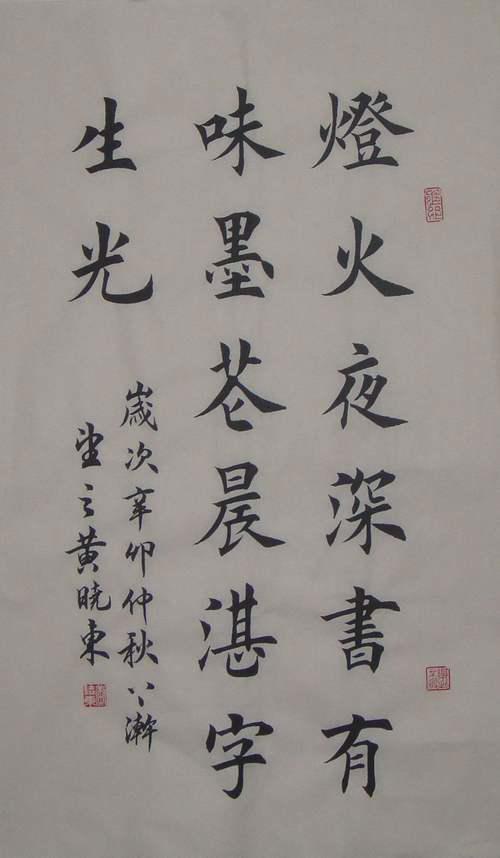 燈火夜深書有
味墨花晨湛字
生光
歲次辛卯仲秋下澣
望之黄晓東